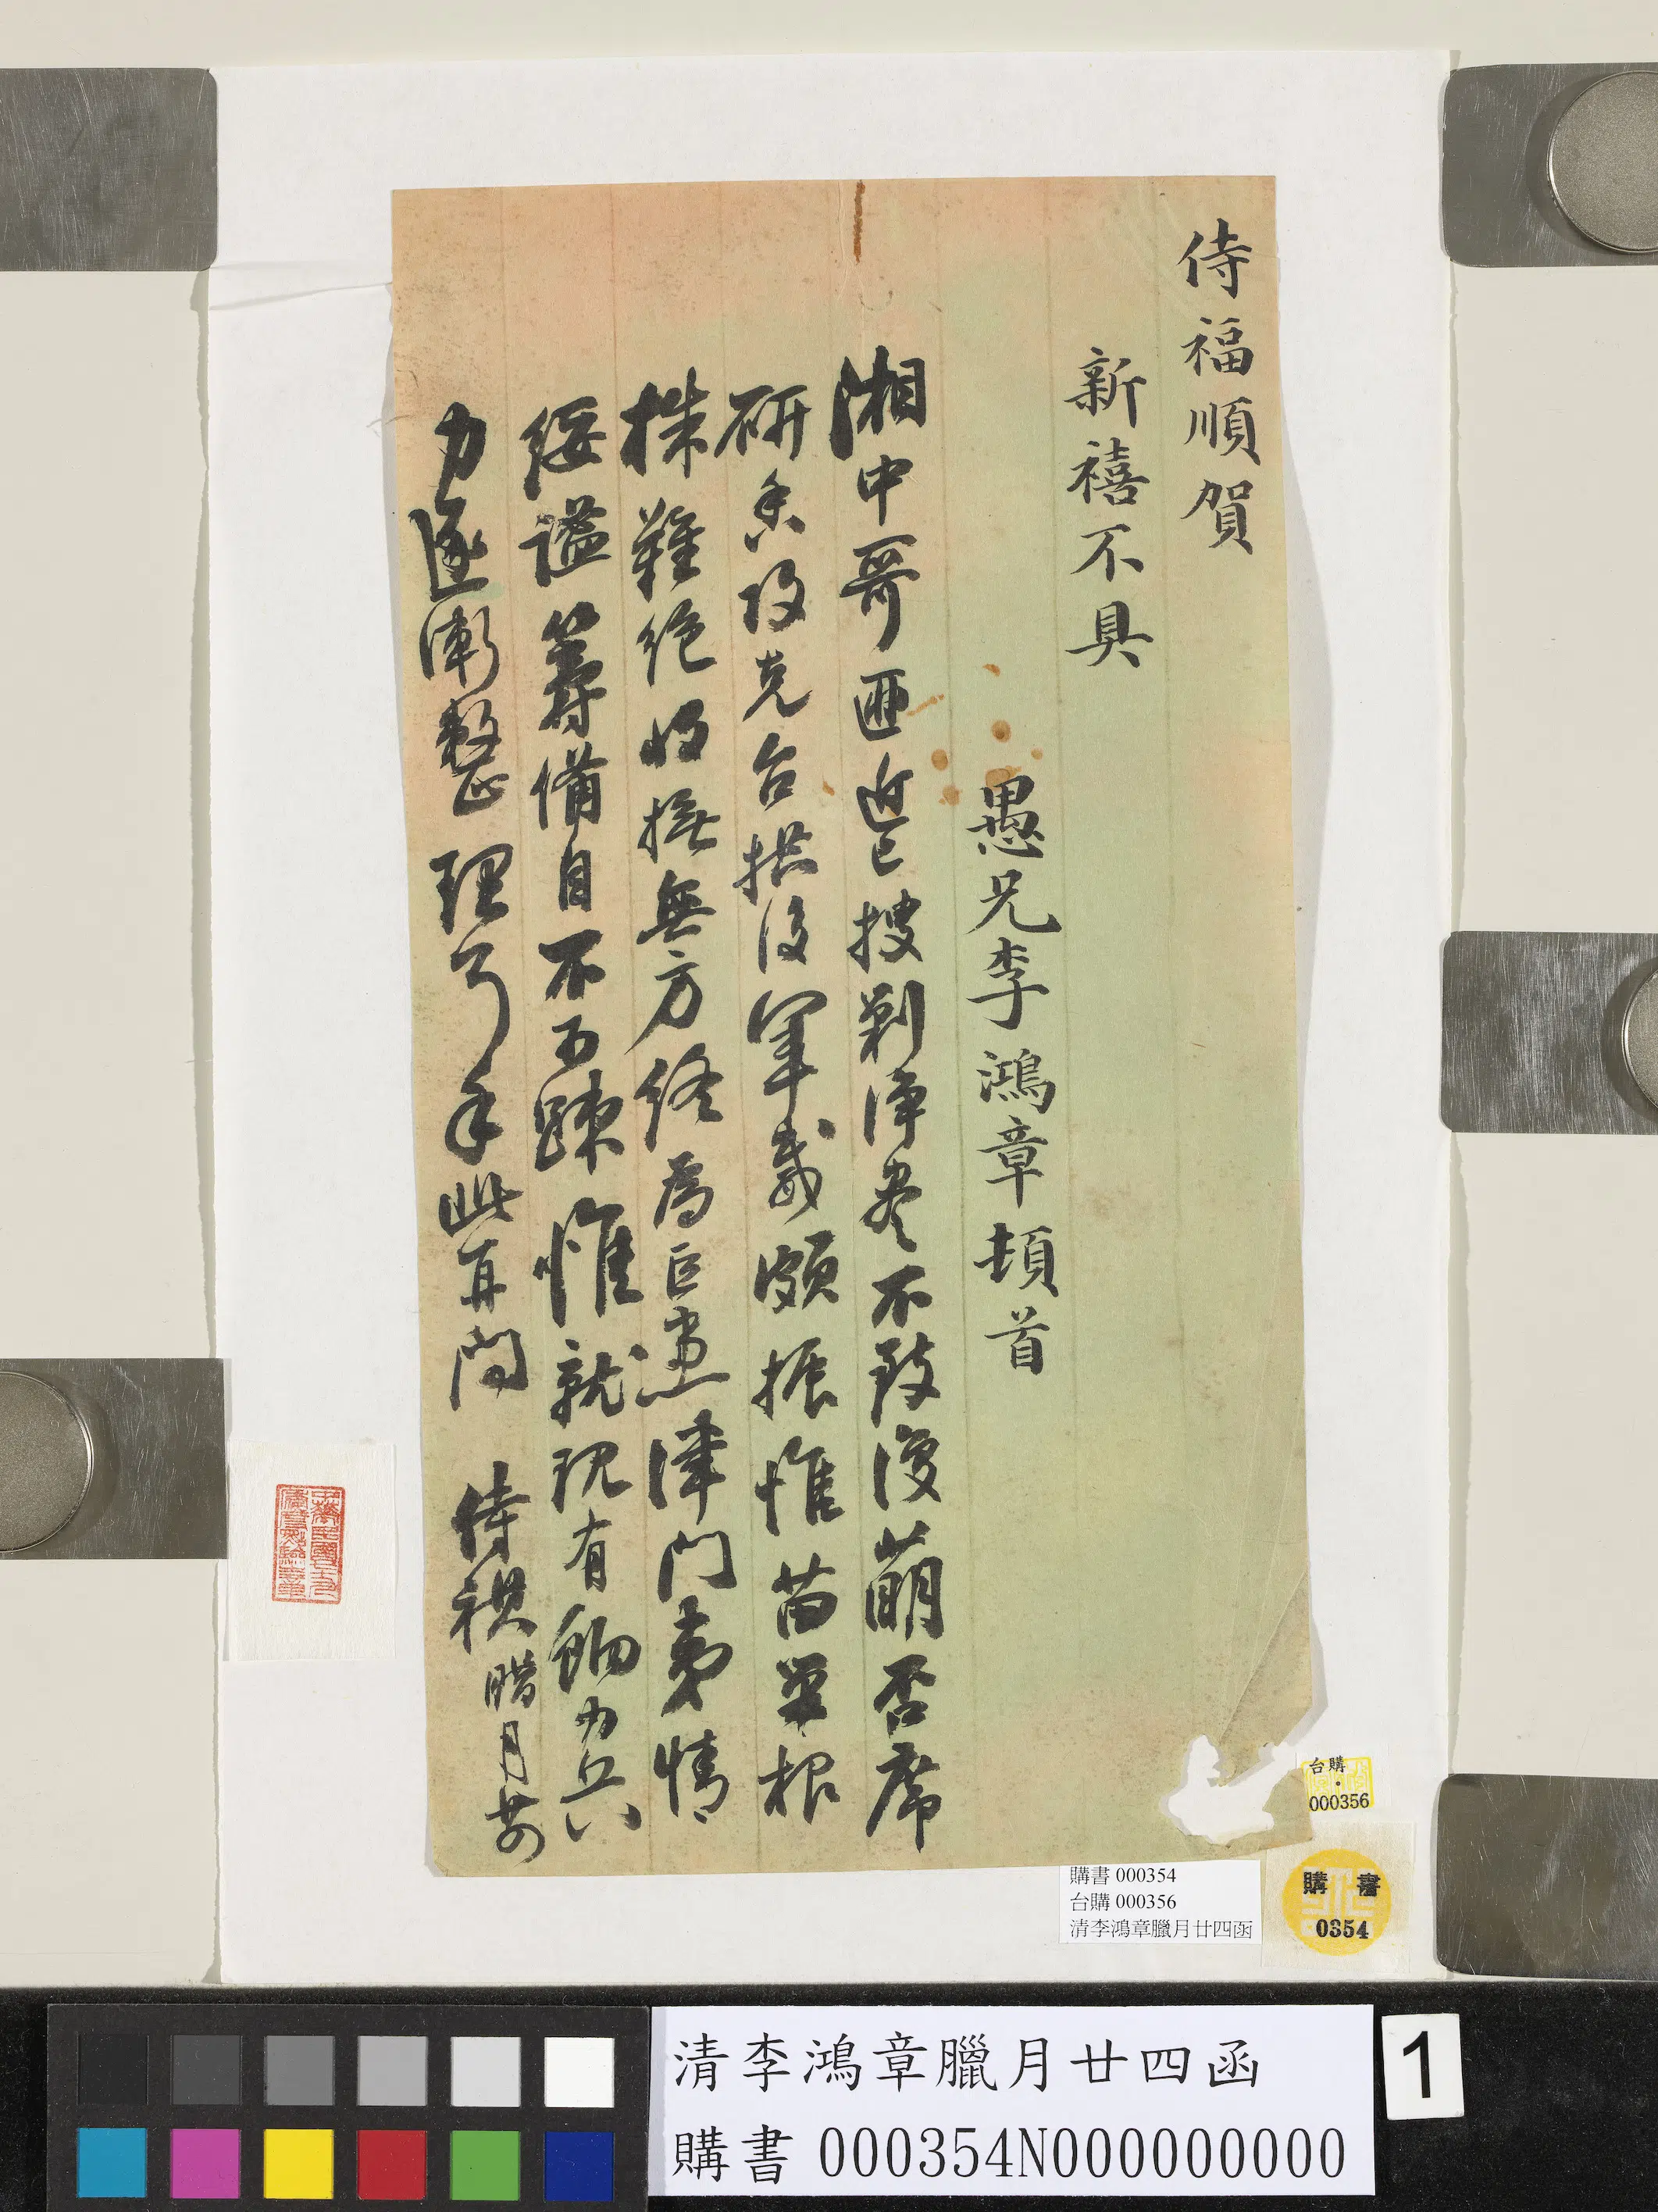 侍福順賀
新禧不具
愚兄李鴻章頓首
湘中哥匪近已搜剿淨盡不致復萌否席
研香攻克台拱後軍威頗振惟苗巢根
株難絕收撫無方終為巨患津門夷情
綏謐籌備自不可疎惟就現有餉力兵
力逐漸整理耳手此再問 侍祺 臘月廿四
台購
000356
購書 000354
台購 000356
清李鴻章臘月廿四函
購書
0354
清李鴻章臘月廿四函
購書 000354N000000000
1